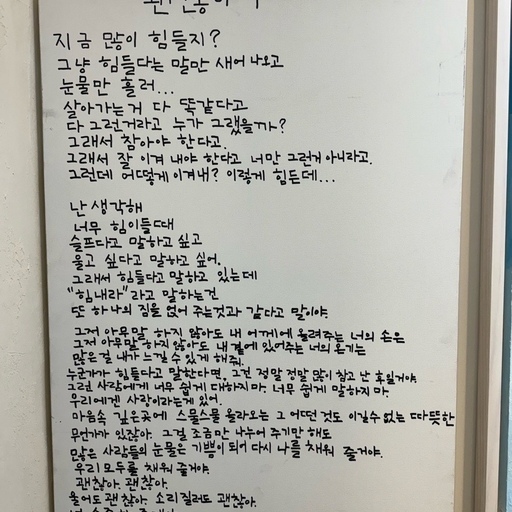 지금 많이 힘들지?
그냥 힘들다는 말만 새어 나오고
눈물만 흘러...
살아가는거 다 똑같다고
다 그런거라고 누가 그랬을까?
그래서 참아야 한다고.
그래서 잘 이겨 내야 한다고 너만 그런거 아니라고.
그런데 어떻게 이겨내? 이렇게 힘든데...
난 생각해
너무 힘이들때
슬프다고 말하고 싶고
울고 싶다고 말하고 싶어.
그래서 힘들다고 말하고 있는데
"힘내라"라고 말하는건
또 하나의 짐을 얹어 주는것과 같다고 말이야.
그저 아무말 하지 않아도 내 어깨에 올려주는 너의 손은
그저 아무말 하지 않아도 내 곁에 있어주는 너의 온기는
많은걸 내가 느낄 수 있게 해줘.
누군가가 힘들다고 말한다면, 그건 정말 정말 많이 참고 난 후일거야
그런 사람에게 너무 쉽게 대하지마. 너무 쉽게 말하지마.
우리에겐 사랑이라는게 있어.
마음속 깊은곳에 스물스물 올라오는 그 어떤 것도 이길수 없는 따뜻한
무언가가 있잖아. 그걸 조금만 나누어 주기만 해도
많은 사람들의 눈물은 기쁨이 되어 다시 나를 채워 줄거야.
우리 모두를 채워 줄거야.
괜찮아. 괜찮아.
울어도 괜찮아. 소리질러도 괜찮아.